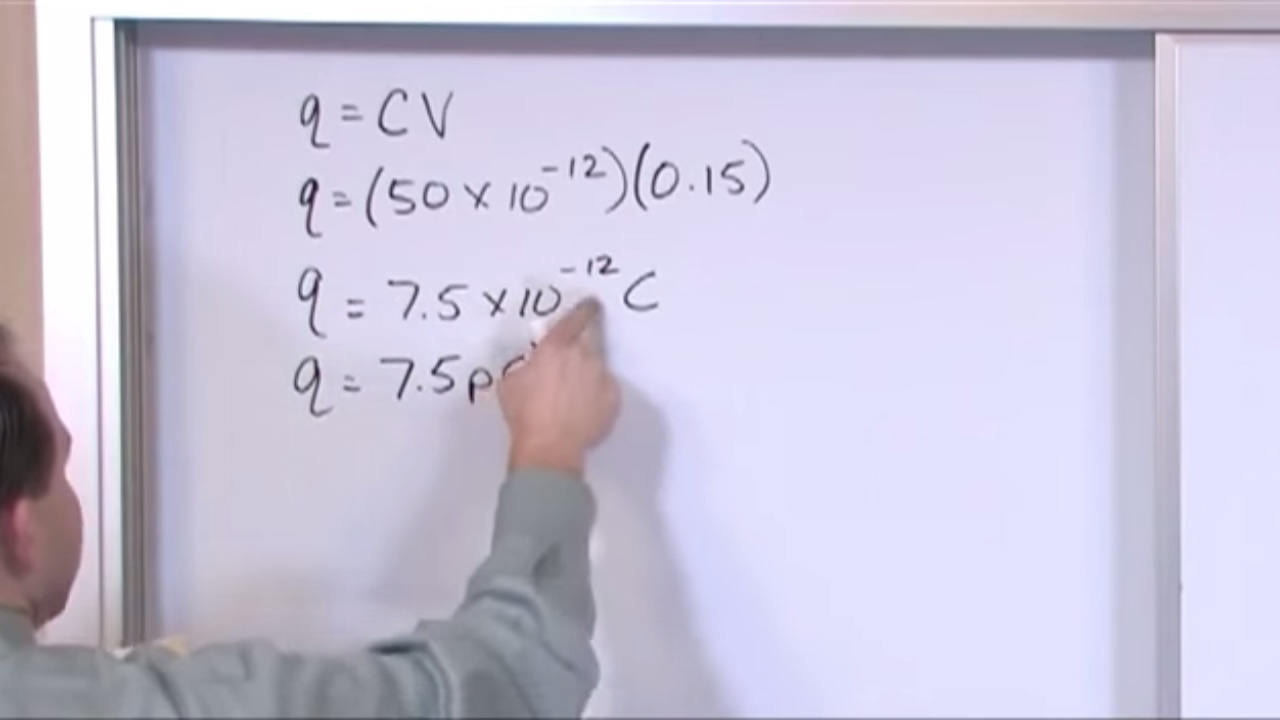 q = CV
q = (50 × 10⁻¹²)(0.15)
q = 7.5 × 10⁻¹² C
q = 7.5